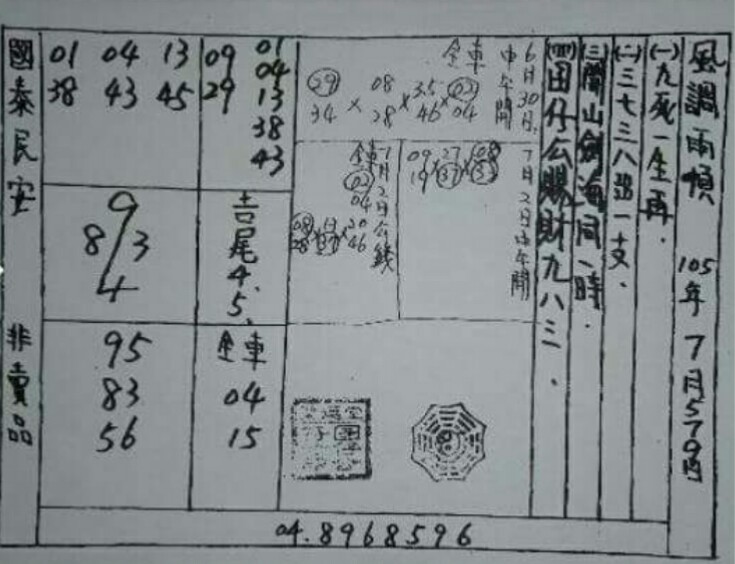 風調雨順 105年7月579內
(一)九死一生再.
(二)三七三八強一支.
(三)關山劍海同一時.
(四)田仔公賜財九八三.
6月30日.
中午開
全車
29 × 08 × 35 × 02
34 28 46 04
7月2日中午開
09 × 27 × 08
19 37 33
7月2日公錢
全車
02
04
08 × 13 × 20
28 37 46
01
09 04
29 13
38
43
01 04 13
38 43 45
吉尾4.5.
9
8/3
4
全車
04
15
95
83
56
國泰民安 非賣品
04.8968596